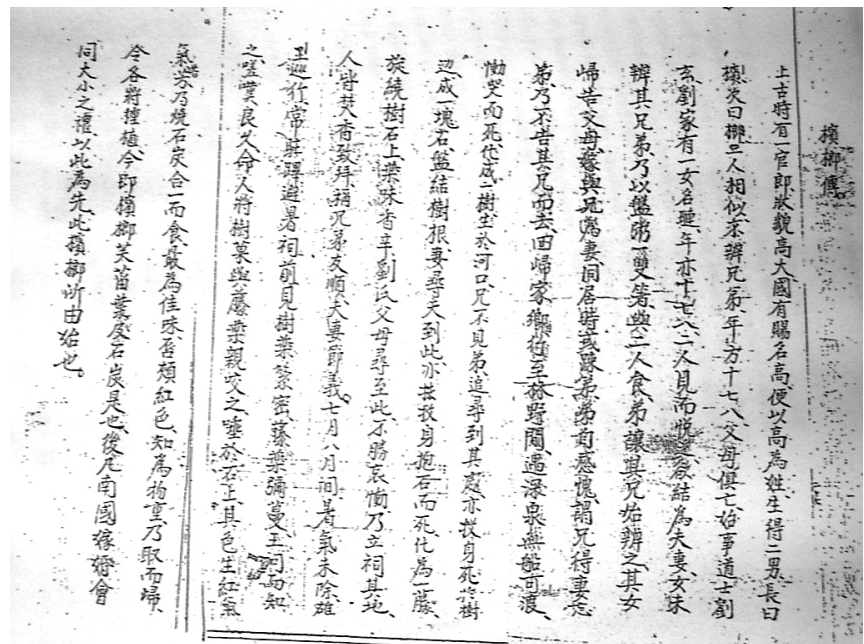 檳榔傳
上古時有一官郎狀貌高大國有賜名高便以高為姓生得二男長曰
檳次曰榔二人相似不辨兄弟年方十七八父母俱亡始事道士劉
玄劉家有一女名璉年亦十七八二人見而悅之欲結為夫妻女未
辨其兄弟乃以盤粥一雙箸與二人食弟讓其兄始辨之其女
歸告父母嫁與兄為妻同居時或疎弟弟自感愧謂兄得妻忘
弟乃不告其兄而去回歸家鄉行至林野間遇深泉無船可渡
慟哭而死化成一樹生於河口兄不見弟追尋到其處亦投身死於樹
边成一塊石盤結樹根妻尋夫到此亦投身抱石而死化為一藤
旋繞樹石上葉味香辛劉氏父母尋至此不勝哀慟乃立祠其地
人皆焚香致拜稱兄弟友順夫妻節義七月八月間暑氣未除雄
王巡行常駐蹕避暑祠前見樹葉繁密藤葉彌蔓王問而知
之嗟嘆良久命人將樹菓與藤葉親咬之唾於石上其色生紅氣
氣芳乃燒石灰合一而食最為佳味唇頰紅色知為物重乃取而歸
令各將種植今即檳榔芙菑葉及石灰是也後凡南國嫁娶會
同大小之禮以此為先此檳榔所由始也